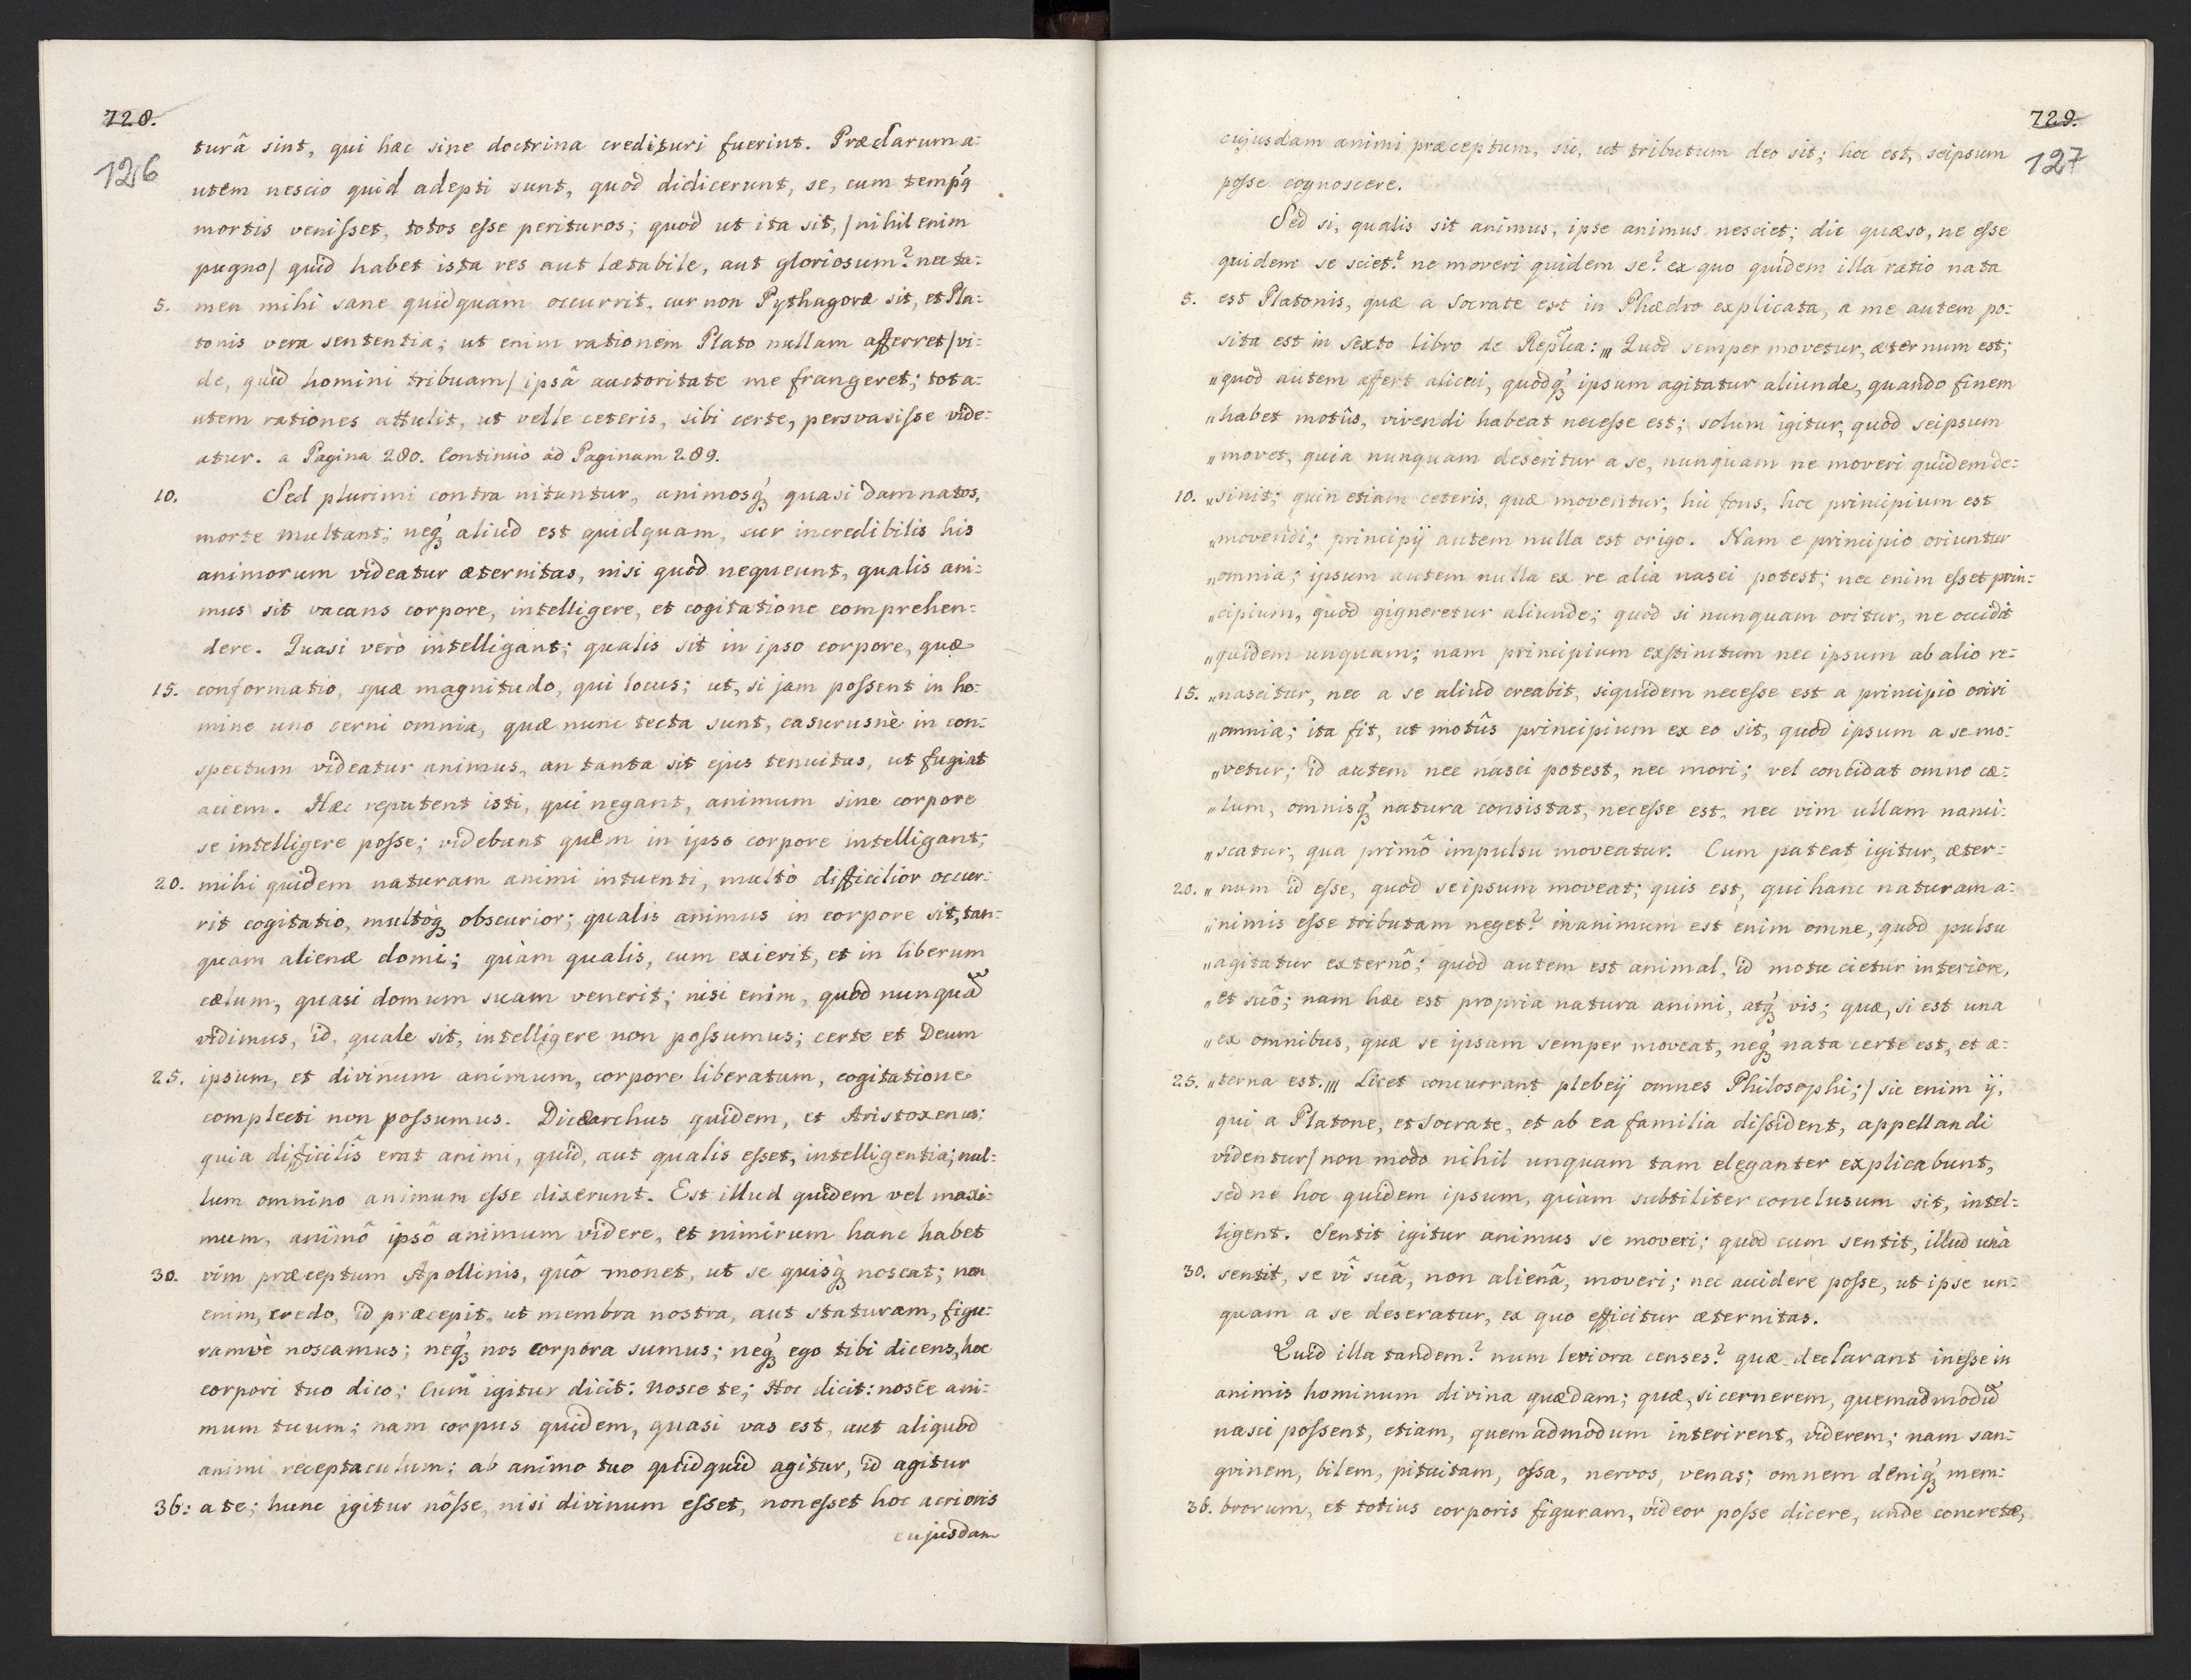 728.
126
turâ sint, qui hæc sine doctrina credituri fuerint. Præclarum a:
utem nescio quid adepti sunt, quod didicerunt, se, cum tempq
mortis venisset, totos esse perituros; quod ut ita sit, /nihil enim
pugno/ quid habet ista res aut lætabile, aut gloriosum? nec ta:
5. men mihi sane quidquam occurrit, cur non Pythagoræ sit, et Pla:
tonis vera sententia; ut enim rationem Plato nullam afferret /vi:
de, quid homini tribuam/ ipsâ auctoritate me frangeret; tot a:
utem rationes attulit, ut velle ceteris, sibi certe, persvasisse vide:
atur. a Pagina 280. Continuò ad Paginam 289.
10. Sed plurimi contra nituntur, animosq́ quasi damnatos,
morte multant; neq́ aliud est quidquam, cur incredibilis his
animorum videatur æternitas, nisi quod nequeunt, qualis ani:
mus sit vacans corpore, intelligere, et cogitatione comprehen:
dere. Quasi verò intelligant; qualis sit in ipso corpore, quæ
15. conformatio, quæ magnitudo, qui locus; ut, si jam possent in ho:
mine uno cerni omnia, quæ nunc tecta sunt, casurusnè in con:
spectum videatur animus, an tanta sit ejus tenuitas, ut fugiat
aciem. Hæc reputent isti, qui negant, animum sine corpore
se intelligere posse; videbunt quem in ipso corpore intelligant;
20. mihi quidem naturam animi intuenti, multò difficilior occur:
rit cogitatio, multòq obscurior; qualis animus in corpore sit, tan:
quam alienæ domi; quàm qualis, cum exierit, et in liberum
cælum, quasi domum suam venerit; nisi enim, quod nunquam
vidimus, id, quale sit, intelligere non possumus; certe et Deum
25. ipsum, et divinum animum, corpore liberatum, cogitatione
complecti non possumus. Dicæarchus quidem, et Aristoxenus:
quia difficilis erat animi, quid, aut qualis esset, intelligentia; nul:
lum omnino animum esse dixerunt. Est illud quidem vel maxi:
mum, animô ipsô animum videre, et nimirum hanc habet
30. vim præceptum Apollinis, quô monet, ut se quisq́ noscat; non
enim, credo, id præcepit, ut membra nostra, aut staturam, figu:
ramvè noscamus; neq́ nos corpora sumus; neq́ ego tibi dicens, hoc
corpori tuo dico; Cum igitur dicit: Nosce te; Hoc dicit: nosce ani:
mum tuum; nam corpus quidem, quasi vas est, aut aliquod
animi receptaculum; ab animo tuo quidquid agitur, id agitur
36: a te; hunc igitur nôsse, nisi divinum esset, non esset hoc acrioris
cujusdam
729.
127
cujusdam animi præceptum, sic, ut tributum deo sit; hoc est, seipsum
posse cognoscere.
Sed si, qualis sit animus, ipse animus nesciet; dic quæso, ne esse
quidem se sciet? ne moveri quidem se? ex quo quidem illa ratio nata
5. est Platonis, quæ a Socrate est in Phædro explicata, a me autem po:
sita est in sexto libro de Republca: „, Quod semper movetur, æternum est;
„quod autem affert alicui, quodq́ ipsum agitatur aliunde, quando finem
„habet motûs, vivendi habeat necesse est; solum igitur, quod seipsum
„movet, quia nunquam deseritur a se, nunquam ne moveri quidem de:
10. „sinit; quin etiam ceteris, quæ moventur; hic fons, hoc principium est
„movendi; principij autem nulla est origo. Nam e principio oriuntur
„omnia; ipsum autem nulla ex re alia nasci potest; nec enim esset prin:
„cipium, quod gigneretur aliunde; quod si nunquam oritur, ne occidit
„quidem unquam; nam principium exstinctum nec ipsum ab alio re:
15. „nascitur, nec a se aliud creabit, siquidem necesse est a principio oriri
„omnia; ita fit, ut motûs principium ex eo sit, quod ipsum a se mo:
„vetur; id autem nec nasci potest, nec mori; vel concidat omne cæ:
„lum, omnisq́ natura consistat, necesse est, nec vim ullam nanci:
„scatur, qua primô impulsu moveatur. Cum pateat igitur, æter:
20. „num id esse, quod seipsum moveat; quis est, qui hanc naturam a:
„nimis esse tributam neget? inanimum est enim omne, quod pulsu
„agitatur externô; quod autem est animal, id motu cietur interiore,
„et suô; nam hæc est propria natura animi, atq́ vis; quæ, si est una
„ex omnibus, quæ se ipsam semper moveat, neq́ nata certe est, et æ:
25. „terna est.„, Licet concurrant plebeij omnes Philosophi; /sic enim ij,
qui a Platone, et Socrate, et ab ea familia dissident, appellandi
videntur/ non modo nihil unquam tam eleganter explicabunt,
sed ne hoc quidem ipsum, quàm subtiliter conclusum sit, intel:
ligent. Sentit igitur animus se moveri; quod cum sentit, illud unà
30. sentit, se vî suâ, non alienâ, moveri; nec accidere posse, ut ipse un:
quam a se deseratur, ex quo efficitur æternitas.
Quid illa tandem? num leviora censes? quæ declarant inesse in
animis hominum divina quædam; quæ, si cernerem, quemadmodum
nasci possent, etiam, quemadmodum interirent, viderem; nam san:
gvinem, bilem, pituitam, ossa, nervos, venas; omnem deniq́ mem:
36. brorum, et totius corporis figuram, videor posse dicere, unde concretæ,